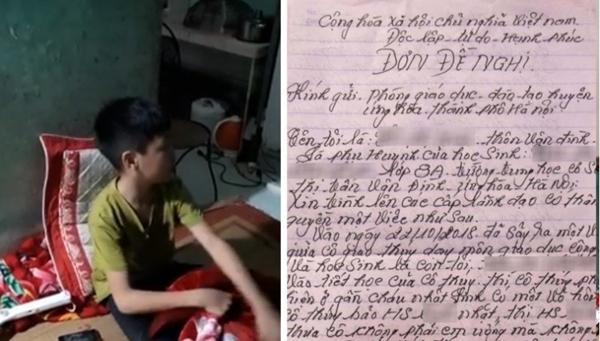 Cộng hòa xã hội chủ nghĩa việt nam
Độc lập tự do - Hạnh phúc
ĐƠN ĐỀ NGHỊ
Kính gửi. Phòng giáo dục - đào tạo huyện
ứng hòa. thành phố Hà nội
Tên tôi là: thôn vân đình.
Là phụ huynh của học sinh:
Lớp 8A. trường trung học cơ sở
thị trấn Vân Đình, ứng hòa Hà Nội
Xin trình lên các cấp lãnh đạo có thẩm
quyền một việc như sau.
Vào ngày 22/10/2018. đã sảy ra một
giữa cô giáo thủy dạy môn giáo dục công
và học sinh là con tôi.
vào tiết học của cô thủy. thì cô thủy
hiện ở gần cháu nhất đình có một vỏ
cô thủy bảo HS nhất, thì HS
thưa cô không phải em uống mà không